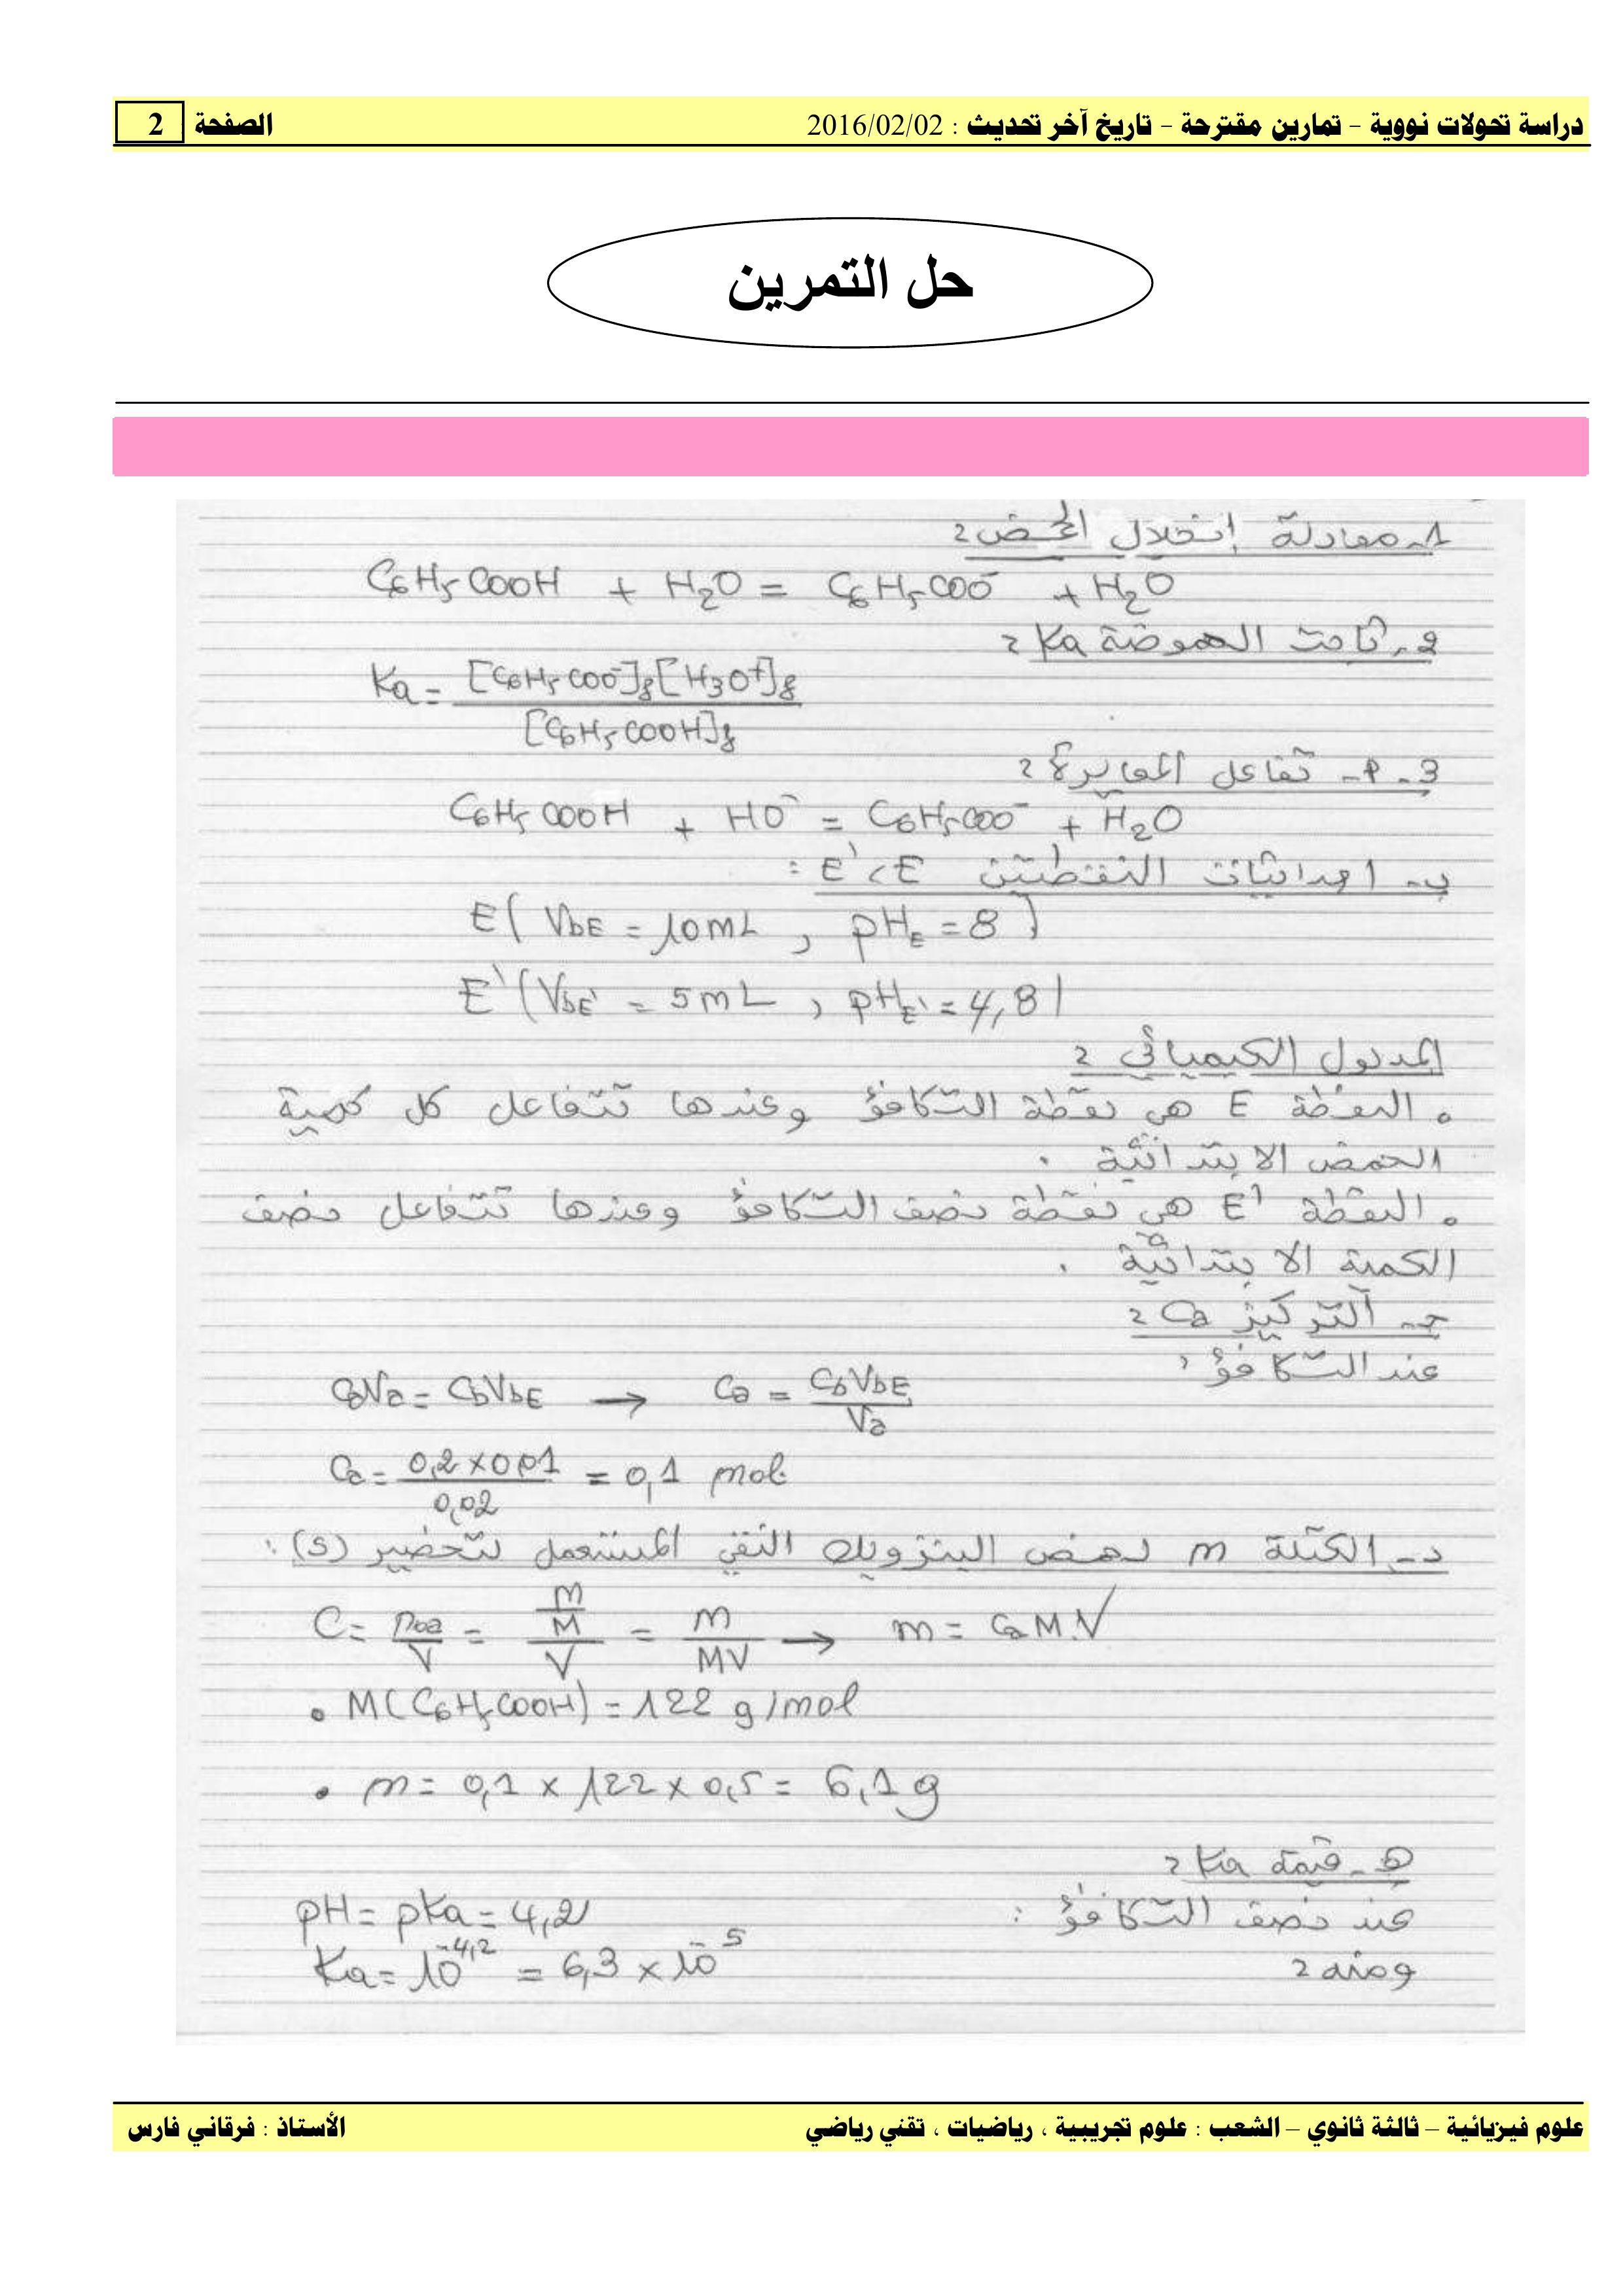 دراسة تحولات نووية - تمارين مقترحة - تاريخ آخر تحديث : 2016/02/02 الصفحة 2
حل التمرين
1- معادلة إنحلال الحمض :
C6H5COOH + H2O = C6H5COO⁻ + H2O
2- ثابت الحموضة Ka :
Ka = [C6H5COO⁻]f [H3O⁺]f / [C6H5COOH]f
3- أ- تفاعل المعايرة :
C6H5COOH + HO⁻ = C6H5COO⁻ + H2O
ب- احداثيات النقطتين E ، E' :
E ( VbE = 10 mL , pHE = 8 )
E' ( VbE' = 5 mL , pHE' = 4,8 )
المدلول الكيميائي :
• النقطة E هي نقطة التكافؤ وعندها تتفاعل كل كمية
الحمض الابتدائية .
• النقطة E' هي نقطة نصف التكافؤ وعندها تتفاعل نصف
الكمية الابتدائية .
ج- التركيز Ca :
عند التكافؤ :
CaVa = CbVbE → Ca = CbVbE / Va
Ca = 0,2 × 0,01 / 0,02 = 0,1 mol
د- الكتلة m لحمض البنزويك النقي المستعمل لتحضير (S) :
C = n0a / V = (m / M) / V = m / MV → m = Ca M.V
• M(C6H5COOH) = 122 g/mol
• m = 0,1 × 122 × 0,5 = 6,1 g
هـ- قيمة Ka :
عند نصف التكافؤ : pH = pKa = 4,2
ومنه : Ka = 10^-4,2 = 6,3 × 10^-5
علوم فيزيائية – ثالثة ثانوي – الشعب : علوم تجريبية ، رياضيات ، تقني رياضي الأستاذ : فرقاني فارس